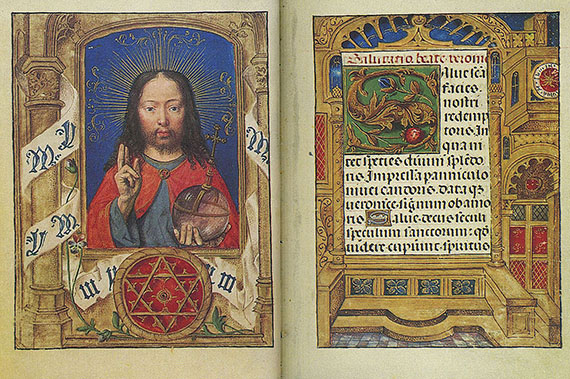 Salutatio beate veronice
Salue sca
facies
nostri
redemp
toris. In
qua ni
tet species diuini splēdo
ris Impressa panniculo
niuei candoris. data q3
ueronice signum ob amo
ris Salue decus seculi
speculum sanctorum: qd
uidere cupiunt spiritus